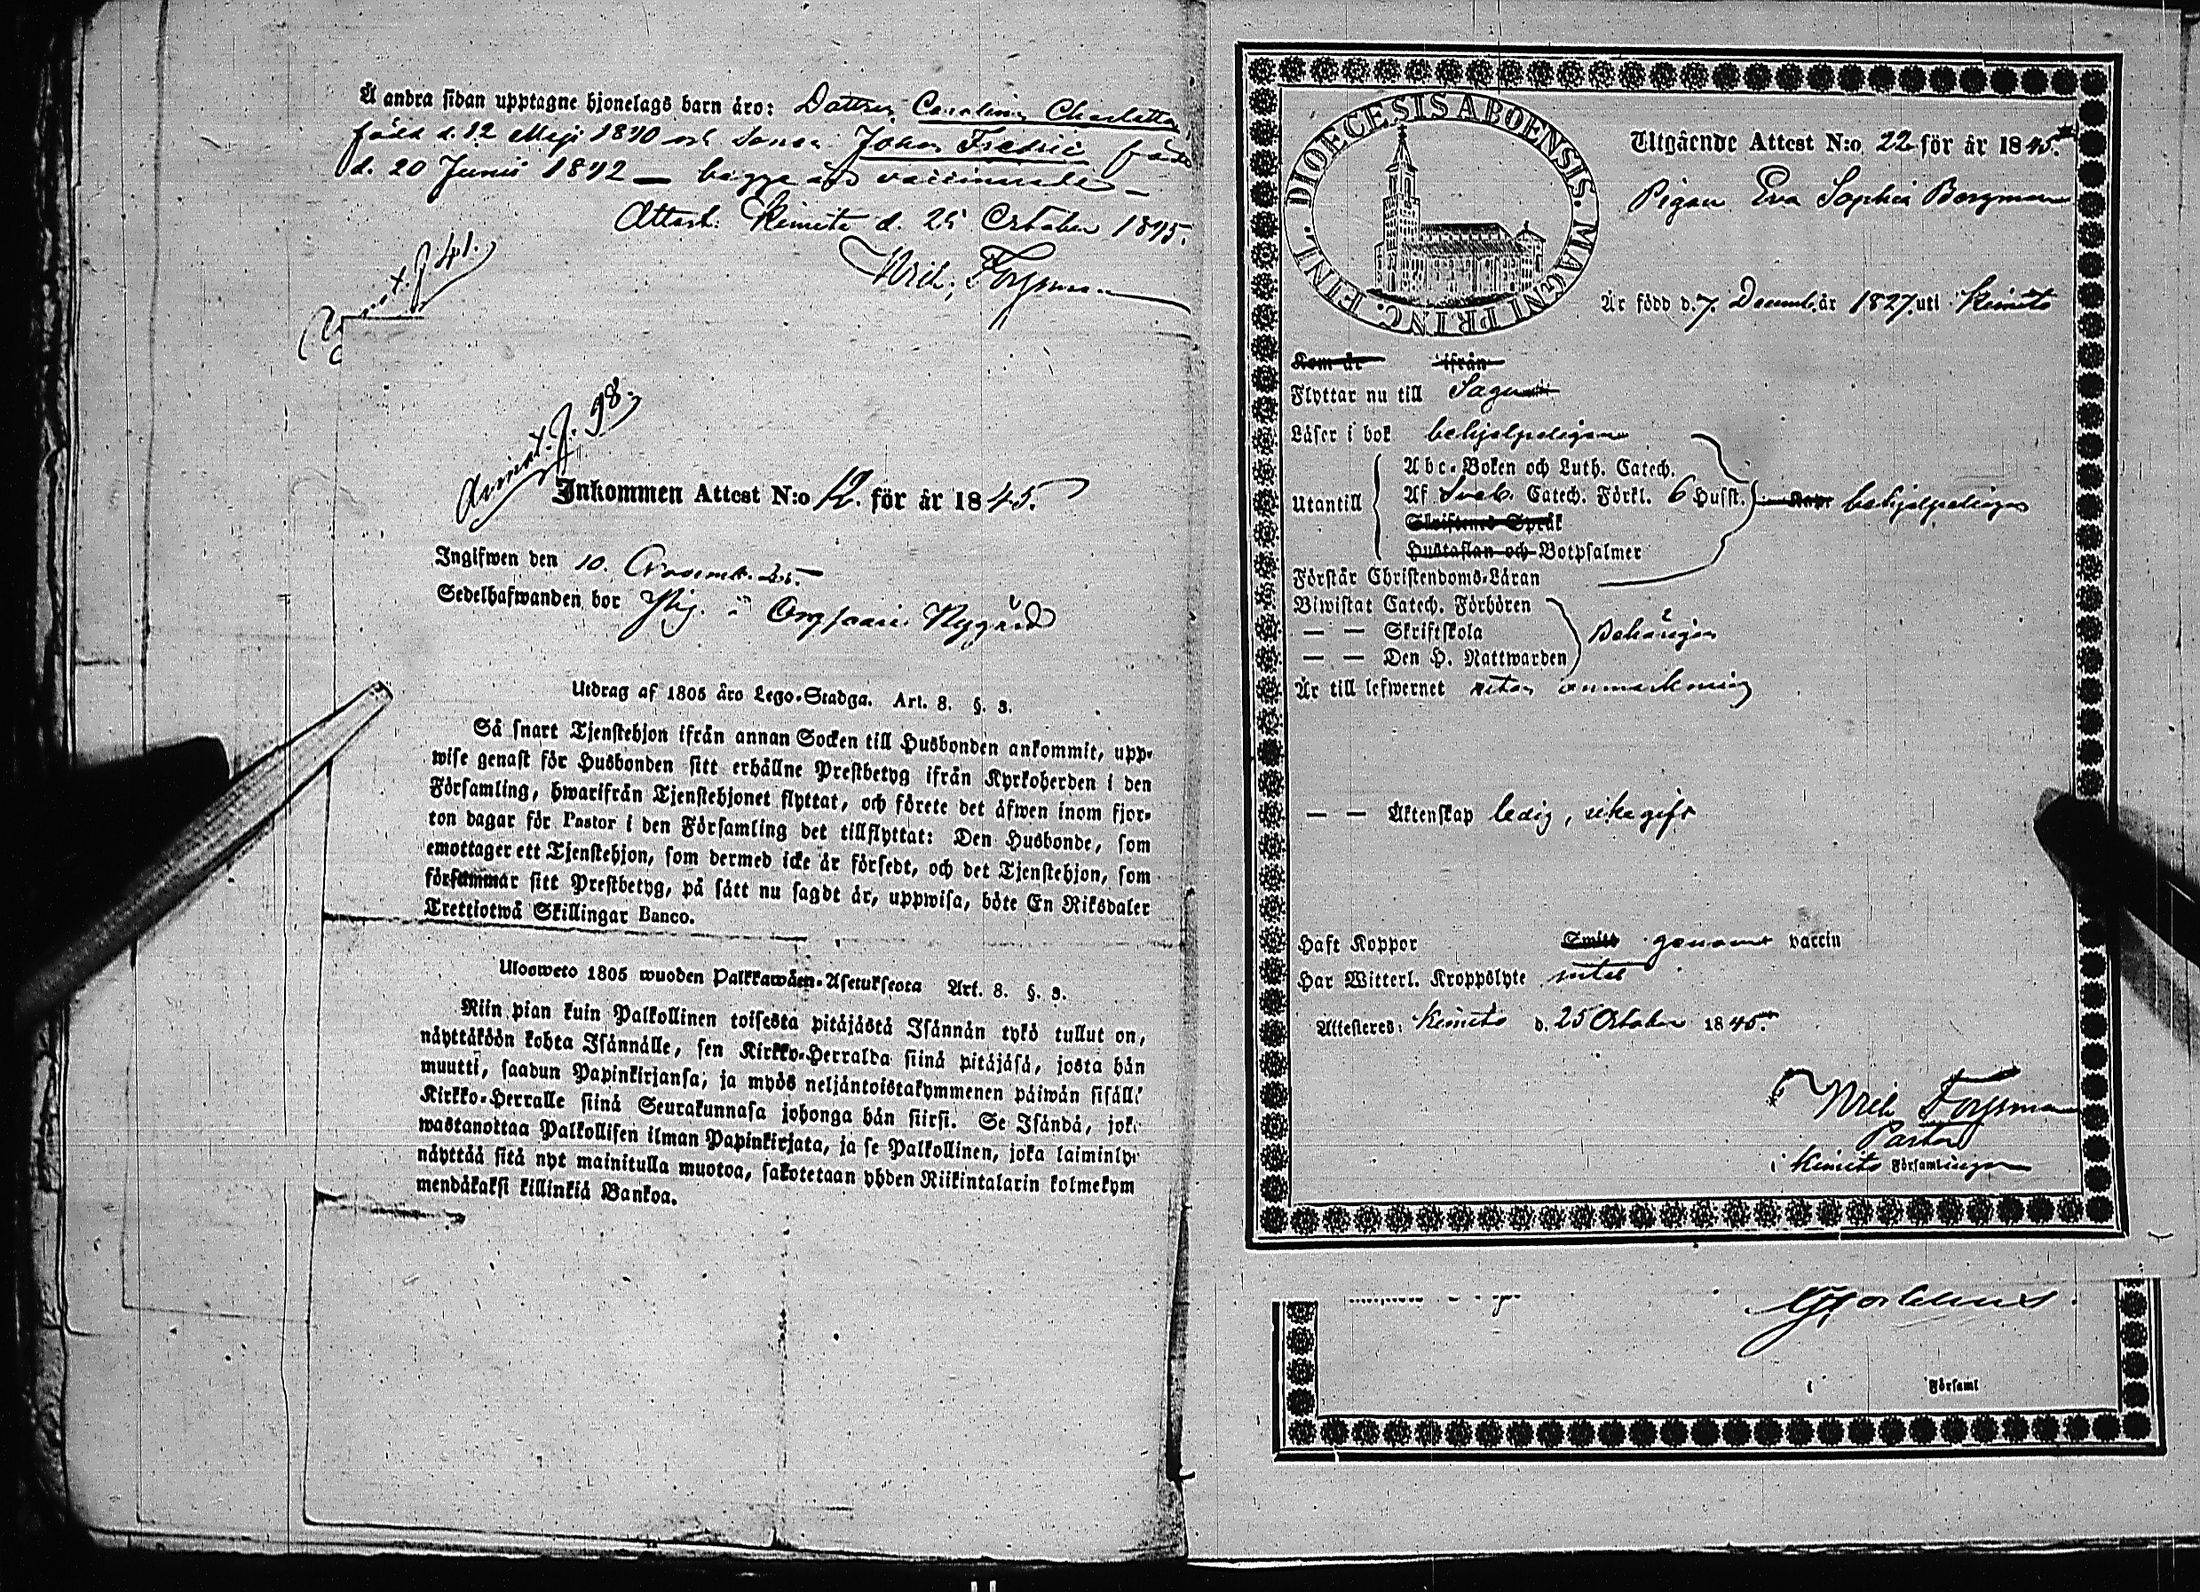 Å andra sidan upptagne hjonelags barn äro: Dottren Carolina Charlotta
född d. 12 Maji 1840 och Sonen Johan Fredric född
d. 20 Junii 1842 — begge äro vaccinerade —
Attest. Kimito d. 25 October 1845.
Wilh. Forssman
41.
98.
Inkommen Attest N:o 12. för år 1845.
Ingifwen den 10. Novemb. 45.
Sedelhafwanden bor Pig. i Nygård
Utdrag af 1805 åro Lego-Stadga. Art. 8. §. 3.
Så snart Tjenstehjon ifrån annan Socken till Husbonden ankommit, upp-
wise genast för Husbonden sitt erhållne Prestbetyg ifrån Kyrkoherden i den
Församling, hwarifrån Tjenstehjonet flyttat, och förete det äfwen inom fjor-
ton dagar för Pastor i den Församling det tillflyttat: Den Husbonde, som
emottager ett Tjenstehjon, som dermed icke är försedt, och det Tjenstehjon, som
försummar sitt Prestbetyg, på sätt nu sagdt är, uppwisa, böte En Riksdaler
Trettiotwå Skillingar Banco.
Ulosweto 1805 wuoden Palkkawäen-Asetuksesta Art. 8. §. 3.
Niin pian kuin Palkollinen toisesta pitäjästä Isännän tykö tullut on,
näyttäköön kohta Isännälle, sen Kirkko-Herralda siinä pitäjäsä, josta hän
muutti, saadun Papinkirjansa; ja myös neljäntoistakymmenen päiwän sisäll.
Kirkko-Herralle siinä Seurakunnasa johonga hän siirsi. Se Isändä, joka
wastanottaa Palkollisen ilman Papinkirjata, ja se Palkollinen, joka laiminlyö
näyttää sitä nyt mainitulla muotoa, sakotetaan yhden Riikintalarin kolmekym
mendäkaksi killinkiä Bankoa.
DIOECESIS ABOENSIS. MAGNI PRINC. FINL.
Utgående Attest N:o 22 för år 1845.
Pigan Eva Sophia Bergman
Är född d. 7. Decemb. år 1827. uti Kimito
Kom år ifrån
Flyttar nu till Sagu
Läser i bok behjelpeligen
Utantill
Abc-Boken och Luth. Catech.
Af Sveb. Catech. Förkl. 6 Husst. behjelpeligen
Skriftenes Språk
Hustaflan och Botpsalmer
Förstår Christendoms-Läran
Biwistat Catech. Förhören
— — Skriftskola Behörigen
— — Den H. Nattwarden
Är till lefwernet utan anmärkning
— — Äktenskap ledig, icke gift
Haft Koppor Smitt genom vaccin
Har Witterl. Kroppslyte intet
Attesteres: Kimito d. 25 October 1845.
Wilh. Forssman
Pastor
i Kimito Församlingen
i Församl